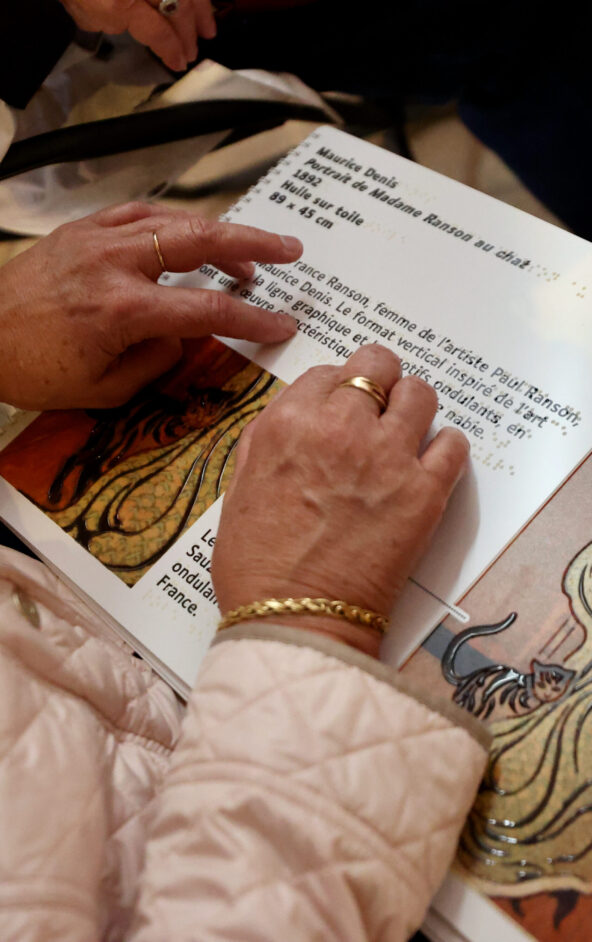 Maurice Denis
Portrait de Madame Ranson au chat
1892
Huile sur toile
89 × 45 cm
rance Ranson, femme de l'artiste Paul Ranson,
Maurice Denis. Le format vertical inspiré de l'art
la ligne graphique et les motifs ondulants, en
ont une œuvre caractéristique
nabie.
Le
Sauz
ondulan
France.